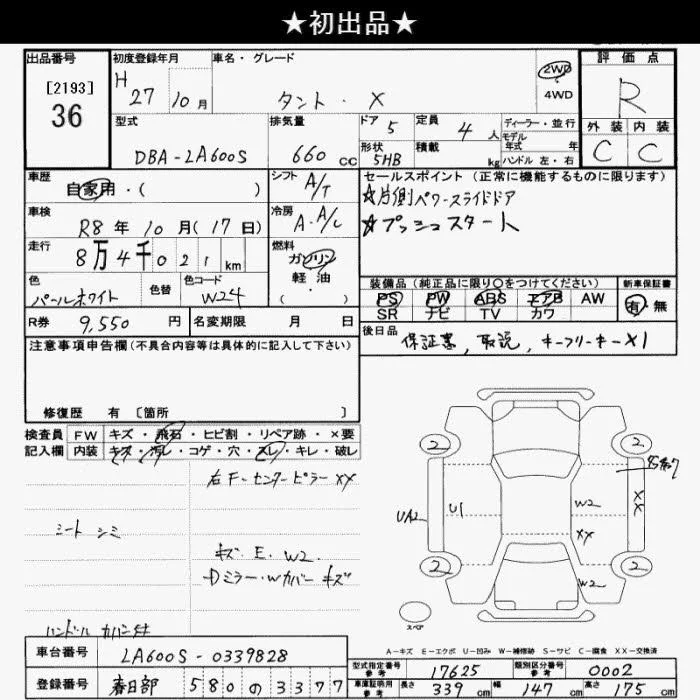 ★初出品★
出品番号
[2193]
36
初度登録年月
H 27年 10月
車名・グレード
タント・X
2WD
・
4WD
評価点
R
外装 内装
C C
型式
DBA-LA600S
排気量
660 CC
ドア 5
形状 5HB
定員 4人
積載 kg
ディーラー・並行
モデル年式 年
ハンドル 左・右
車歴
自家用・( )
シフト A/T
セールスポイント (正常に機能するものに限ります)
☆片側パワースライドドア
☆プッシュスタート
車検
R8年10月(17日)
冷房 A・A/C
走行
8万4千021km
燃料
ガソリン
軽・油
・( )
色
パールホワイト
色替
色コード
W24
装備品 (純正品に限り〇をつけてください)
PS PW ABS エアB AW
SR ナビ TV カワ
新車保証書
有・無
R券 9,550円
名変期限 月 日
後日品
保証書,取説,キーフリーキー×1
注意事項申告欄(不具合内容等は具体的に記入して下さい)
修復歴 有 〔箇所 〕
検査員 FW キズ・飛石・ヒビ割・リペア跡・×要
記入欄 内装 キズ・汚レ・コゲ・穴・スレ・キレ・破レ
右F-センターピラー XX
シート シミ
キズ.E.W2.
Dミラー・Wカバー キズ
ハンドル カバー付
2 2
UA2 U1 W2 XX
XX
2 2
W2
スペア
A-キズ E-エクボ U-凹み W-補修跡 S-サビ C-腐食 XX-交換済
車台番号 LA600S-0339828
登録番号 春日部 580の3377
型式指定番号 参考 17625
類別区分番号 参考 0002
車庫証明用 参考 長さ 339cm 幅 147cm 高さ 175cm